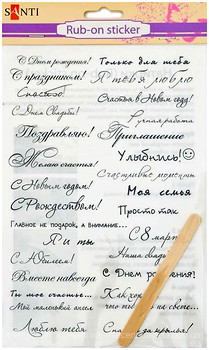 SANTI
Rub-on sticker
С Днем рождения!
Только для тебя
С праздником!
Я тебя люблю
Спасибо!
Счастья в Новом году!
С Днем Свадьбы!
Ручная работа
Поздравляю!
Приглашение
Желаю счастья!
Улыбнись!
Счастливые моменты
С Новым годом!
Моя семья
С Рождеством!
Просто так
Главное не подарок, а внимание...
Я и ты
С 8 марта
С Юбилеем!
Наша
Вместе навсегда
С Днем рождения!
Ты мое счастье...
Как хорошо
Мой маленький ангел
на свете...
Люблю тебя
Спасибо за крылья!